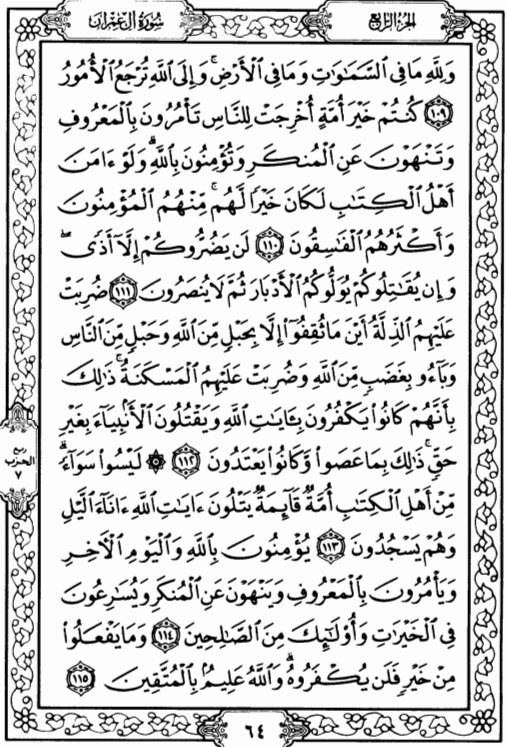 سُورَةُ آلِ عِمْرَانَ
الجُزْءُ الرَّابِعُ
وَلِلَّهِ مَا فِي السَّمَاوَاتِ وَمَا فِي الْأَرْضِ ۚ وَإِلَى اللَّهِ تُرْجَعُ الْأُمُورُ
١٠٩ كُنتُمْ خَيْرَ أُمَّةٍ أُخْرِجَتْ لِلنَّاسِ تَأْمُرُونَ بِالْمَعْرُوفِ
وَتَنْهَوْنَ عَنِ الْمُنكَرِ وَتُؤْمِنُونَ بِاللَّهِ ۗ وَلَوْ ءَامَنَ
أَهْلُ الْكِتَٰبِ لَكَانَ خَيْرًا لَّهُم ۚ مِّنْهُمُ الْمُؤْمِنُونَ
وَأَكْثَرُهُمُ الْفَٰسِقُونَ ١١٠ لَن يَضُرُّوكُمْ إِلَّآ أَذًى ۖ
وَإِن يُقَٰتِلُوكُمْ يُوَلُّوكُمُ الْأَدْبَارَ ثُمَّ لَا يُنصَرُونَ ١١١ ضُرِبَتْ
عَلَيْهِمُ الذِّلَّةُ أَيْنَ مَا ثُقِفُوٓا۟ إِلَّا بِحَبْلٍ مِّنَ اللَّهِ وَحَبْلٍ مِّنَ النَّاسِ
وَبَآءُو بِغَضَبٍ مِّنَ اللَّهِ وَضُرِبَتْ عَلَيْهِمُ الْمَسْكَنَةُ ۚ ذَٰلِكَ
بِأَنَّهُمْ كَانُوا۟ يَكْفُرُونَ بِـَٔايَٰتِ اللَّهِ وَيَقْتُلُونَ الْأَنۢبِيَآءَ بِغَيْرِ
حَقٍّ ۚ ذَٰلِكَ بِمَا عَصَوا۟ وَّكَانُوا۟ يَعْتَدُونَ ١١٢ ۞ لَيْسُوا۟ سَوَآءً ۗ
مِّنْ أَهْلِ الْكِتَٰبِ أُمَّةٌ قَآئِمَةٌ يَتْلُونَ ءَايَٰتِ اللَّهِ ءَانَآءَ الَّيْلِ
وَهُمْ يَسْجُدُونَ ١١٣ يُؤْمِنُونَ بِاللَّهِ وَالْيَوْمِ الْءَاخِرِ
وَيَأْمُرُونَ بِالْمَعْرُوفِ وَيَنْهَوْنَ عَنِ الْمُنكَرِ وَيُسَٰرِعُونَ
فِي الْخَيْرَٰتِ وَأُو۟لَٰٓئِكَ مِنَ الصَّٰلِحِينَ ١١٤ وَمَا يَفْعَلُوا۟
مِنْ خَيْرٍ فَلَن يُكْفَرُوهُ ۗ وَاللَّهُ عَلِيمٌۢ بِالْمُتَّقِينَ ١١٥
ربع
الحزب
٧
٦٤